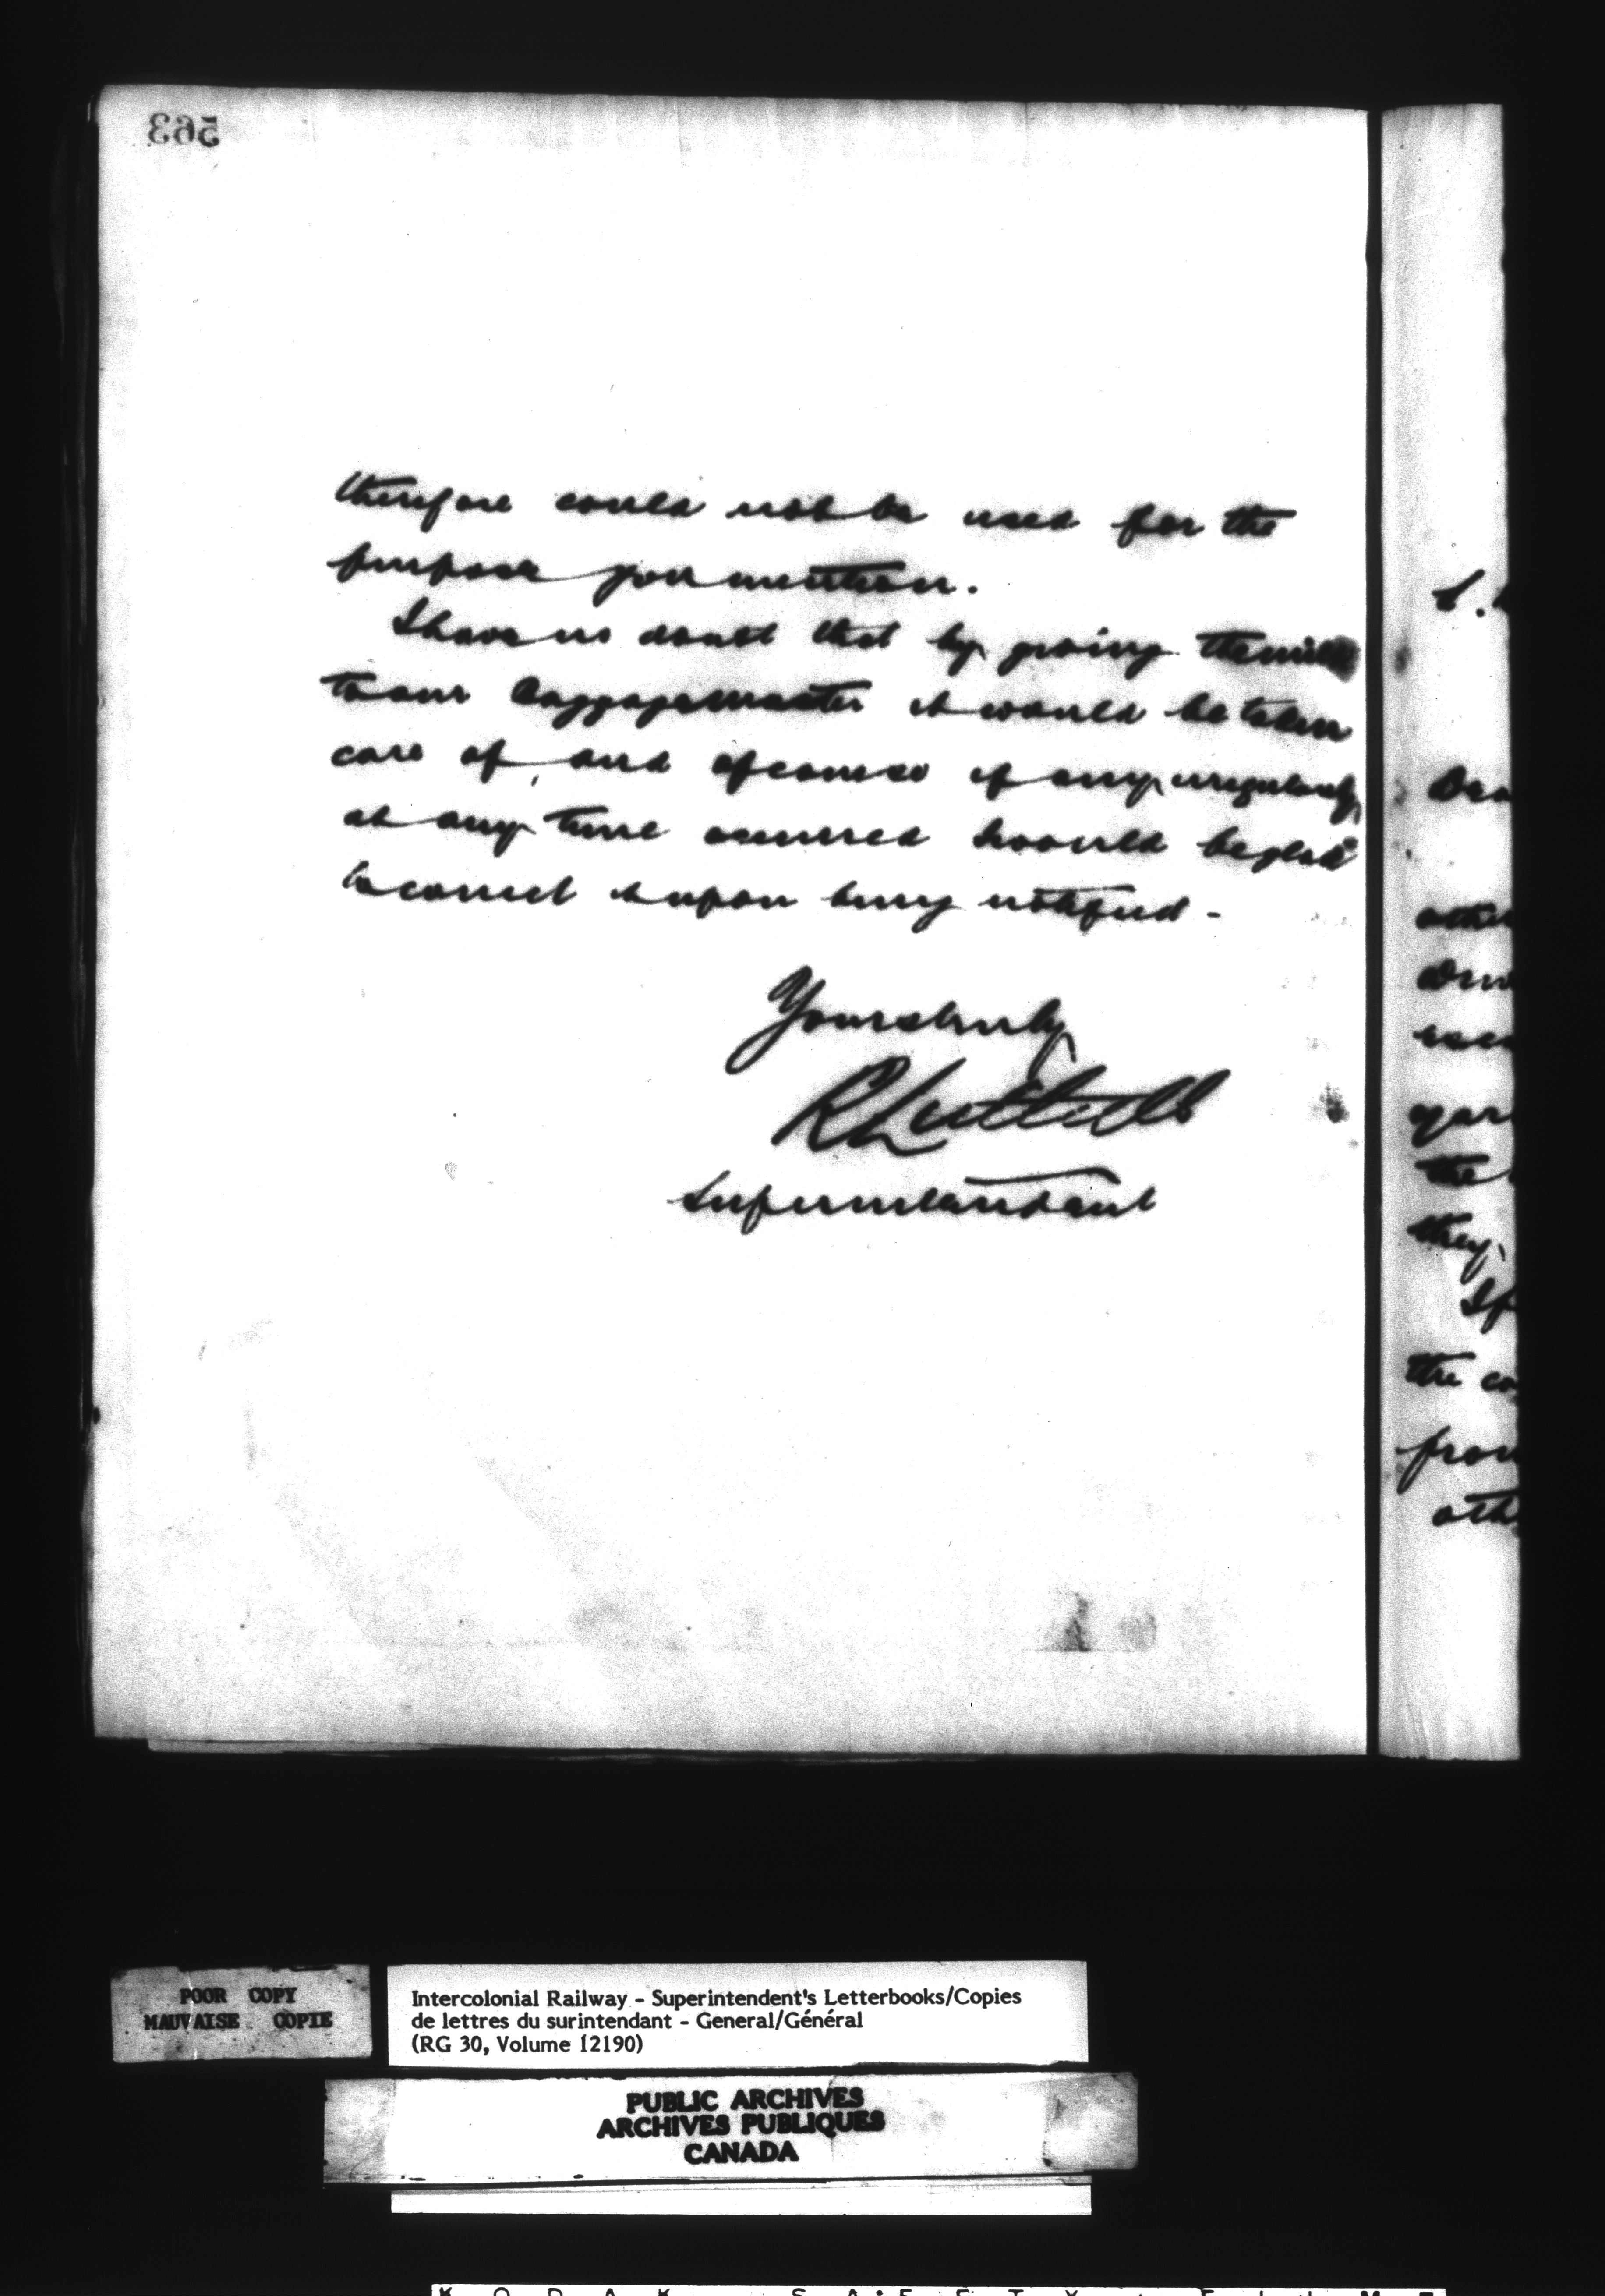 563
therefore could not be used for the
purpose you mention.
I have no doubt that by giving the milk
to our Baggagemaster it would be taken
care of, and of course if any irregularity
at any time occurred I would be glad
to correct it upon being notified -
Yours truly
R Luttrell
Superintendent
Dea
other
the
they
If
the co
from
oth
POOR COPY
MAUVAISE COPIE
Intercolonial Railway - Superintendent's Letterbooks/Copies
de lettres du surintendant - General/Général
(RG 30, Volume 12190)
PUBLIC ARCHIVES
ARCHIVES PUBLIQUES
CANADA
KODAK SAFETY FILM